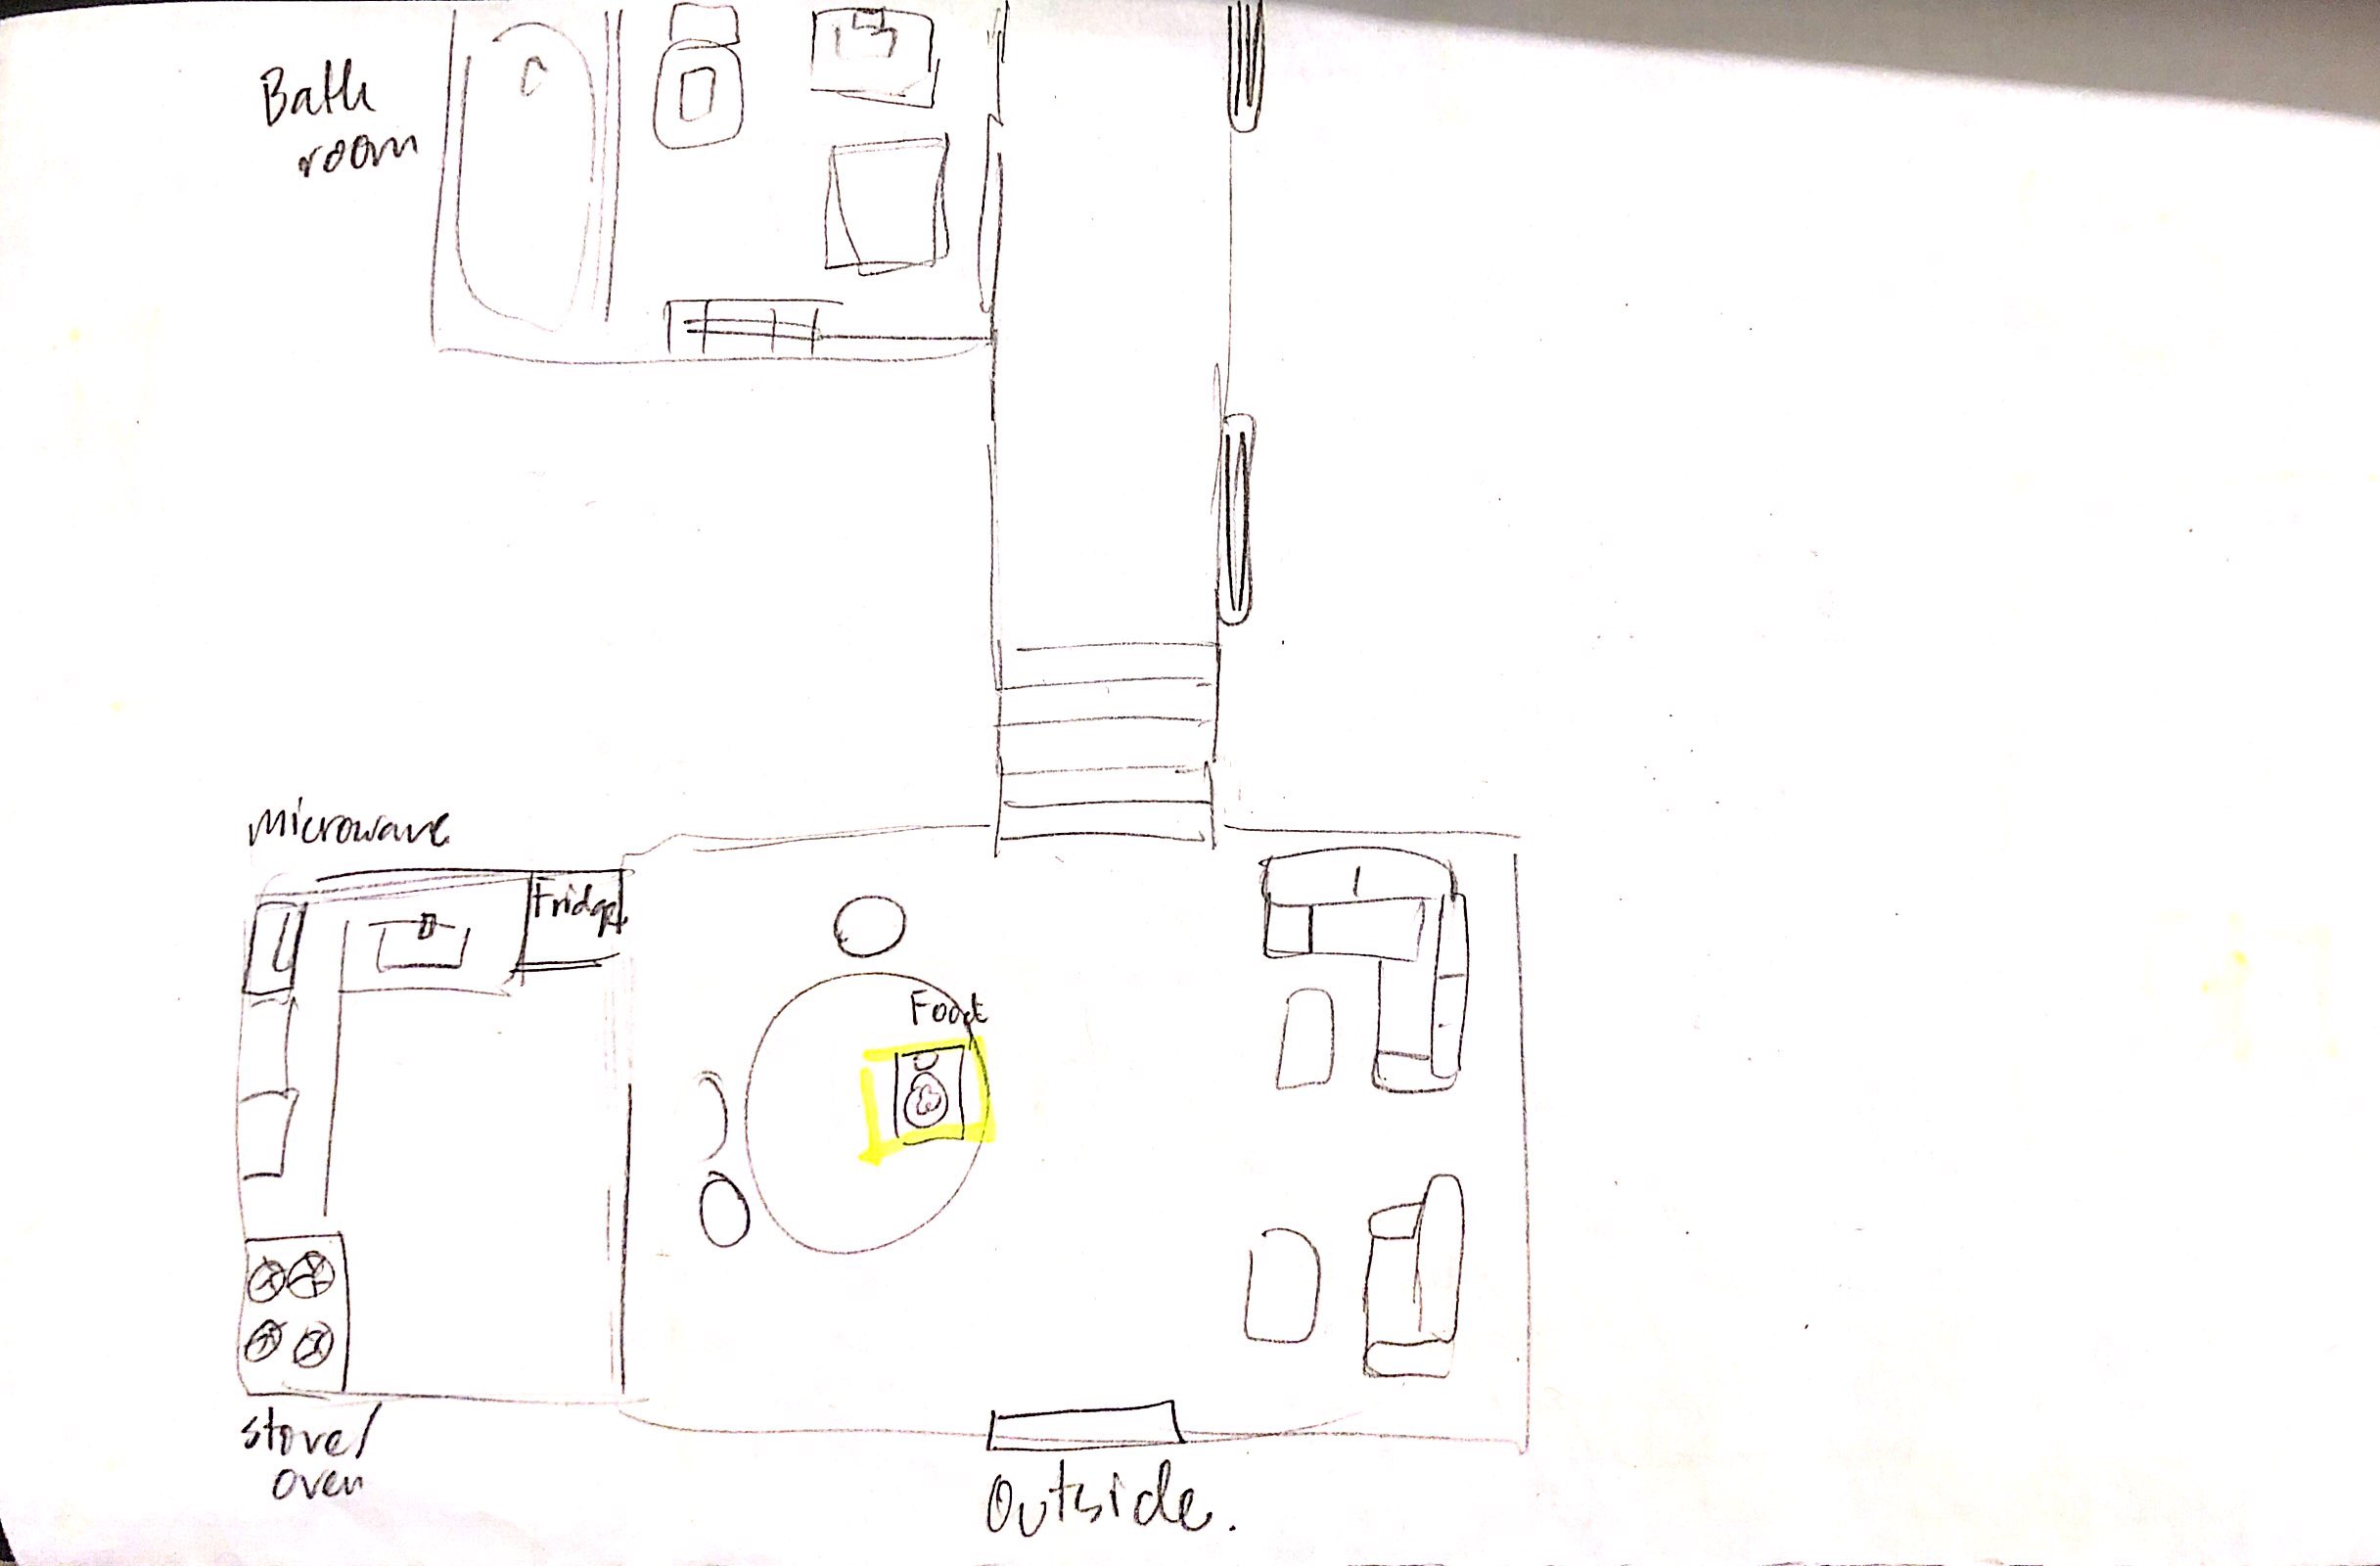 Bath
room
Microwave
Fridge
Food
Stove/
oven
Outside.